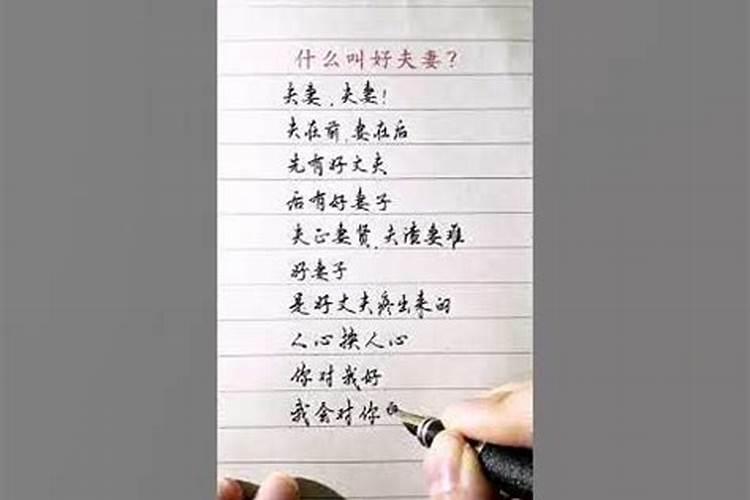 什么叫好夫妻？
夫妻，夫妻！
夫在前，妻在后
先有好丈夫
后有好妻子
夫正妻贤，夫渣妻难
好妻子
是好丈夫疼出来的
人心换人心
你对我好
我会对你